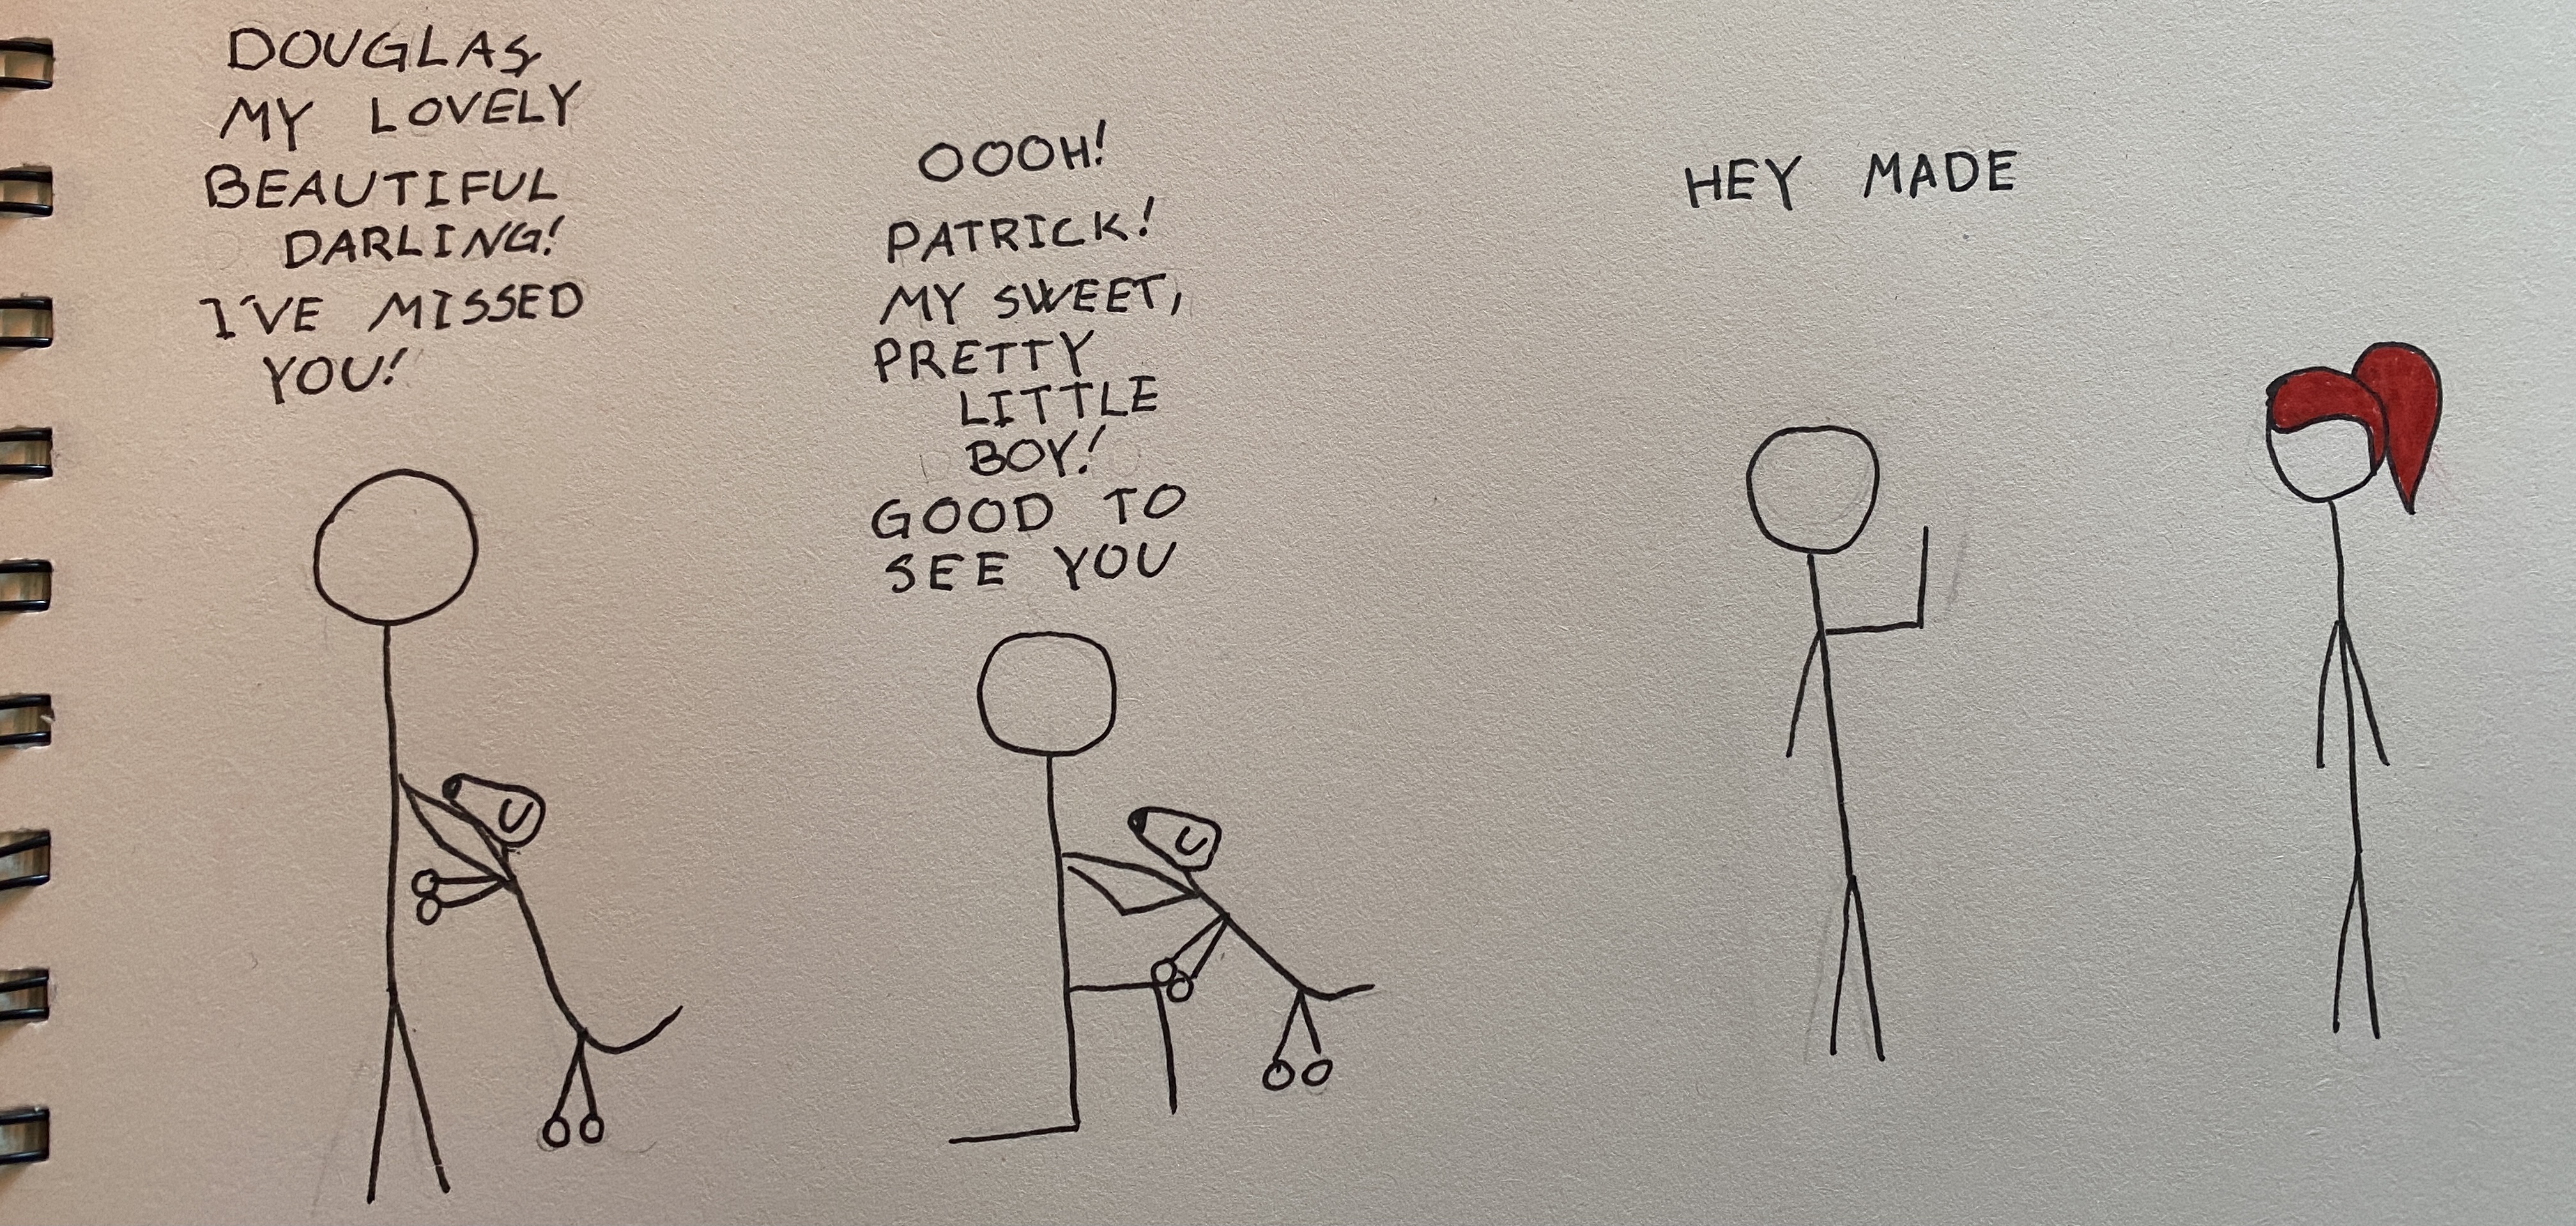 DOUGLAS,
MY LOVELY
BEAUTIFUL
DARLING!
I'VE MISSED
YOU!
OOOH!
PATRICK!
MY SWEET,
PRETTY
LITTLE
BOY!
GOOD TO
SEE YOU
HEY MADE